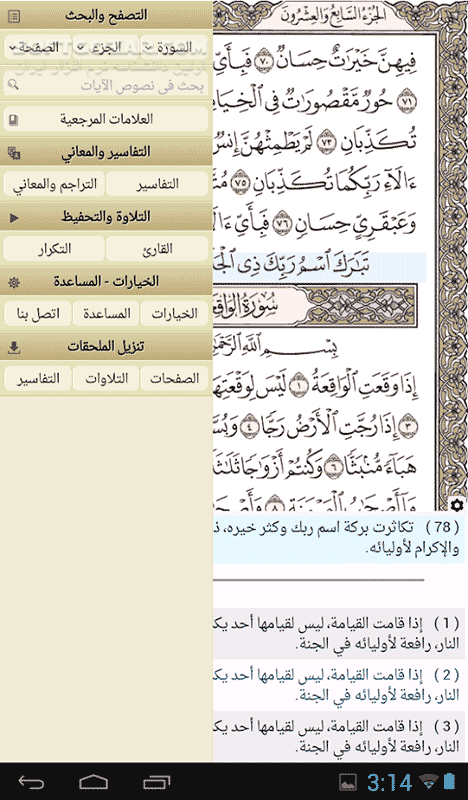 الجُزءُ السَّابِعُ وَالعِشْرُونَ
فِيهِنَّ خَيْرَٰتٌ حِسَانٌ ٧٠ فَبِأَيِّ
٧١ حُورٌ مَّقْصُورَٰتٌ فِي ٱلْخِيَا
تُكَذِّبَانِ ٧٣ لَمْ يَطْمِثْهُنَّ إِنسٌ
ءَالَآءِ رَبِّكُمَا تُكَذِّبَانِ ٧٥
وَعَبْقَرِيٍّ حِسَانٍ ٧٦ فَبِأَيِّ ءَالَا
تَبَٰرَكَ ٱسْمُ رَبِّكَ ذِي ٱلْجَ
سُورَةُ الوَاقِعَ
بِسْمِ ٱللَّهِ ٱلرَّحْمَٰ
إِذَا وَقَعَتِ ٱلْوَاقِعَةُ ١ لَيْسَ لِوَقْعَتِهَا
٣ إِذَا رُجَّتِ ٱلْأَرْضُ رَجًّا ٤ وَبُسَّ
هَبَآءً مُّنۢبَثًّا ٦ وَكُنتُمْ أَزْوَٰجًا ثَلَٰثَ
وَأَصْحَٰبُ ٱلْمَيْمَنَةِ ٨ وَأَصْحَٰ
(78) تكاثرت بركة اسم ربك وكثر خيره، ذ
والإكرام لأوليائه.
(1) إذا قامت القيامة، ليس لقيامها أحد يك
النار، رافعة لأوليائه في الجنة.
(2) إذا قامت القيامة، ليس لقيامها أحد يك
النار، رافعة لأوليائه في الجنة.
(3) إذا قامت القيامة، ليس لقيامها أحد يك
النار، رافعة لأوليائه في الجنة.
التصفح والبحث
السورة الجزء الصفحة
بحث في نصوص الآيات
العلامات المرجعية
التفاسير والمعاني
التفاسير التراجم والمعاني
التلاوة والتحفيظ
القارئ التكرار
الخيارات - المساعدة
الخيارات المساعدة اتصل بنا
تنزيل الملحقات
الصفحات التلاوات التفاسير
3:14